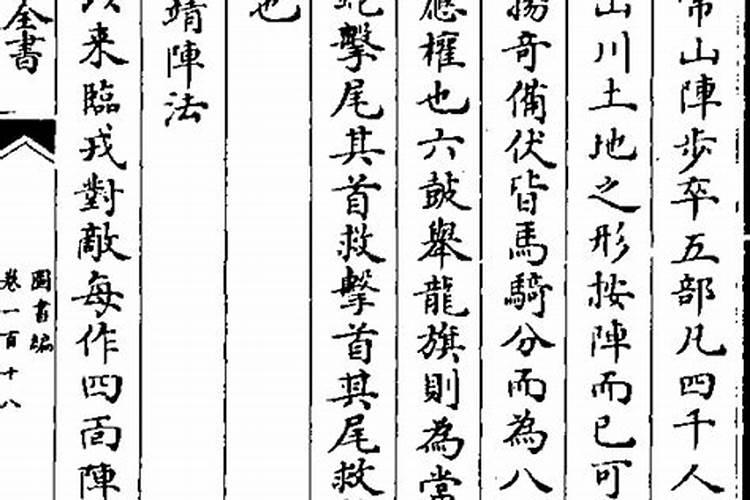 常山陣步卒五部凡四千人
山川土地之形按陣而已可
揚奇備伏皆馬騎分而為八
應權也六鼓舉龍旗則為常
蛇擊尾其首救擊首其尾救
也
靖陣法
來臨戎對敵每作四面陣
全書
圖書編
卷一百十八